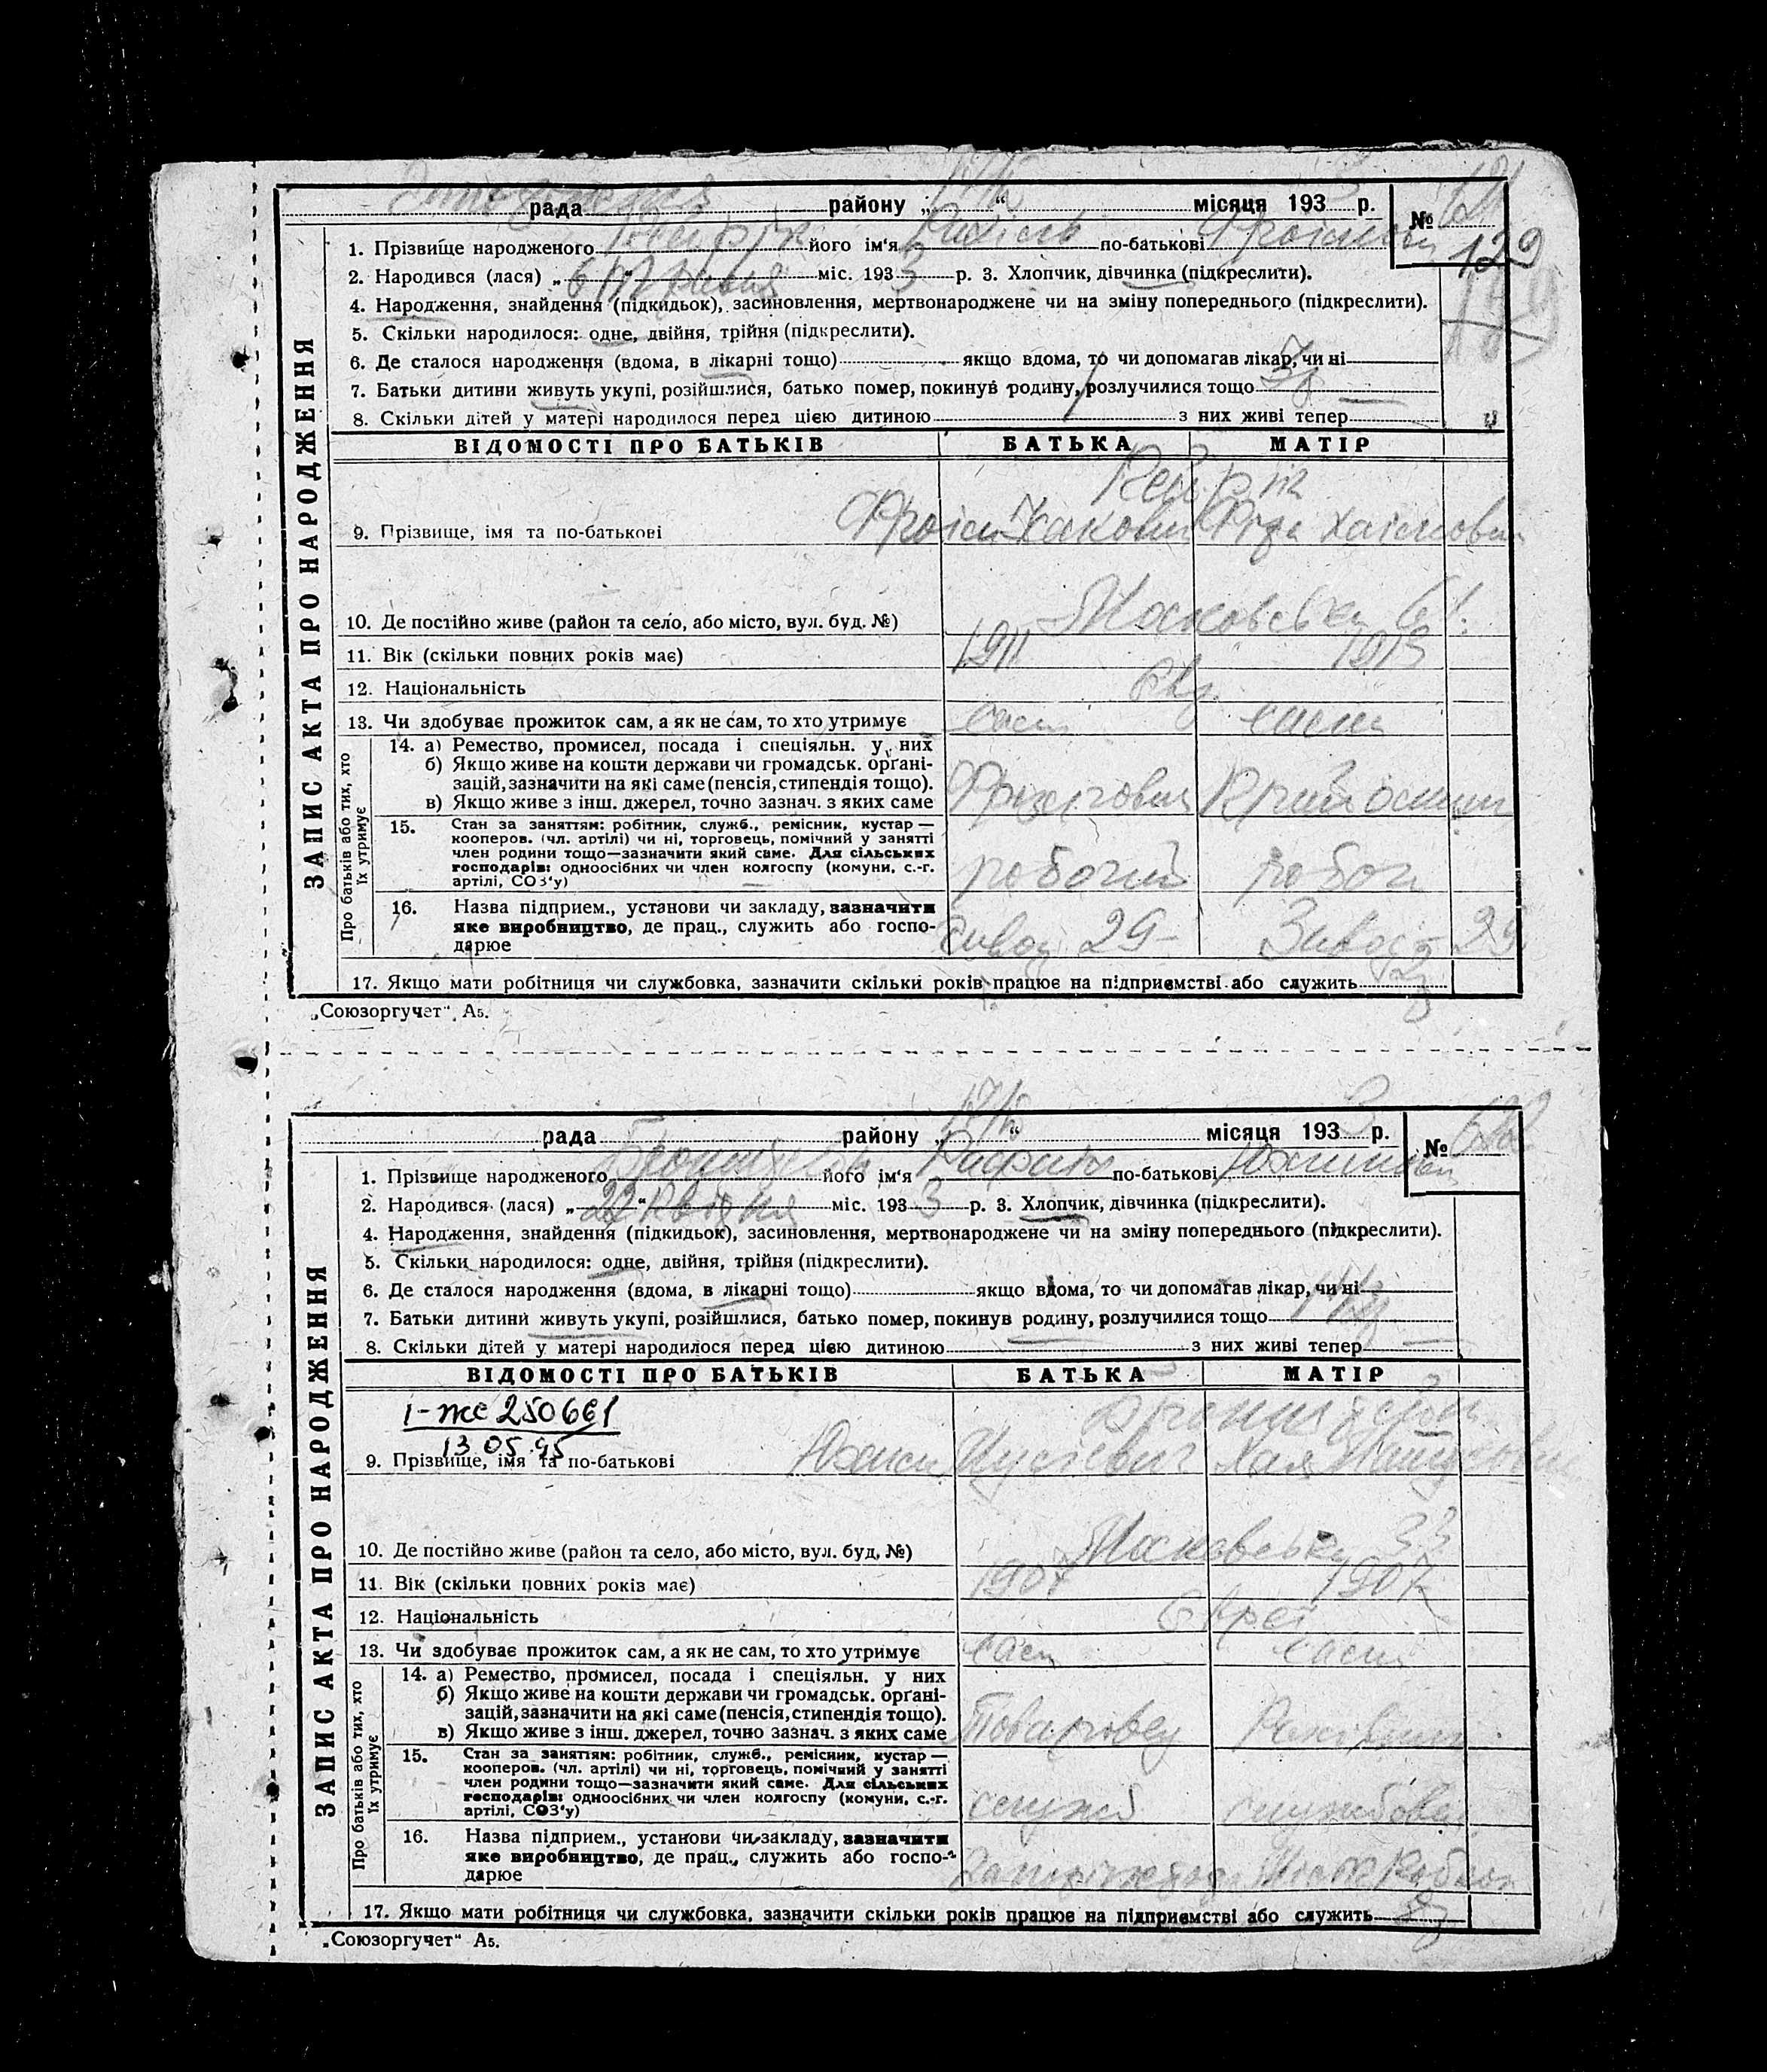 рада району „ “ місяця 193 3 р. №
129
1. Прізвище народженого його ім'я Рахіль по-батькові
2. Народився (лася) „ 6 “ травня міс. 193 3 р. 3. Хлопчик, дівчинка (підкреслити).
4. Народження, знайдення (підкидьок), засиновлення, мертвонароджене чи на зміну попереднього (підкреслити).
5. Скільки народилося: одне, двійня, трійня (підкреслити).
6. Де сталося народження (вдома, в лікарні тощо) якщо вдома, то чи допомагав лікар, чи ні
7. Батьки дитини живуть укупі, розійшлися, батько помер, покинув родину, розлучилися тощо
8. Скільки дітей у матері народилося перед цією дитиною з них живі тепер
ЗАПИС АКТА ПРО НАРОДЖЕННЯ
ВІДОМОСТІ ПРО БАТЬКІВ БАТЬКА МАТІР
9. Прізвище, імя та по-батькові
10. Де постійно живе (район та село, або місто, вул. буд. №) Московська
11. Вік (скільки повних років має) 1911 1913
12. Національність
13. Чи здобуває прожиток сам, а як не сам, то хто утримує сам сама
Про батьків або тих, хто їх утримує
14. а) Ремество, промисел, посада і спеціяльн. у них
б) Якщо живе на кошти держави чи громадськ. організацій, зазначити на які саме (пенсія, стипендія тощо).
в) Якщо живе з інш. джерел, точно зазнач. з яких саме
15. Стан за заняттям: робітник, служб., ремісник, кустар —
кооперов. (чл. артілі) чи ні, торговець, помічний у занятті
член родини тощо—зазначити який саме. Для сільських
господарів: одноосібних чи член колгоспу (комуни, с.-г.
артілі, СОЗ'у) робочий
16. Назва підприєм., установи чи закладу, зазначити
яке виробництво, де прац., служить або господарює завод 29 Завод 29
17. Якщо мати робітниця чи службовка, зазначити скільки років працює на підприємстві або служить
„Союзоргучет“ А5.
рада району „ “ місяця 193 3 р. №
1. Прізвище народженого його ім'я по-батькові
2. Народився (лася) „ 22 “ квітня міс. 193 3 р. 3. Хлопчик, дівчинка (підкреслити).
4. Народження, знайдення (підкидьок), засиновлення, мертвонароджене чи на зміну попереднього (підкреслити).
5. Скільки народилося: одне, двійня, трійня (підкреслити).
6. Де сталося народження (вдома, в лікарні тощо) якщо вдома, то чи допомагав лікар, чи ні
7. Батьки дитини живуть укупі, розійшлися, батько помер, покинув родину, розлучилися тощо
8. Скільки дітей у матері народилося перед цією дитиною з них живі тепер
ЗАПИС АКТА ПРО НАРОДЖЕННЯ
ВІДОМОСТІ ПРО БАТЬКІВ БАТЬКА МАТІР
І-же 250661
13.05.95
9. Прізвище, імя та по-батькові Хая
10. Де постійно живе (район та село, або місто, вул. буд. №) Московська 33
11. Вік (скільки повних років має) 1907 1907
12. Національність євреї
13. Чи здобуває прожиток сам, а як не сам, то хто утримує сам сама
Про батьків або тих, хто їх утримує
14. а) Ремество, промисел, посада і спеціяльн. у них
б) Якщо живе на кошти держави чи громадськ. організацій, зазначити на які саме (пенсія, стипендія тощо).
в) Якщо живе з інш. джерел, точно зазнач. з яких саме
15. Стан за заняттям: робітник, служб., ремісник, кустар —
кооперов. (чл. артілі) чи ні, торговець, помічний у занятті
член родини тощо—зазначити який саме. Для сільських
господарів: одноосібних чи член колгоспу (комуни, с.-г.
артілі, СОЗ'у) служб
16. Назва підприєм., установи чи закладу, зазначити
яке виробництво, де прац., служить або господарює
17. Якщо мати робітниця чи службовка, зазначити скільки років працює на підприємстві або служить
„Союзоргучет“ А5.